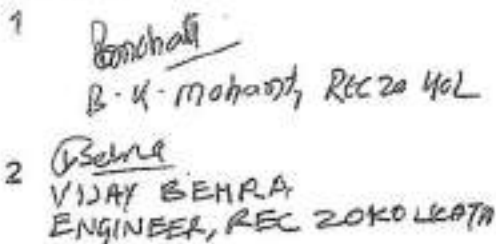 1
B.K. Mohanty, REC ZO KOL
2 Behra
VIJAY BEHRA
ENGINEER, REC ZO KOLKATA